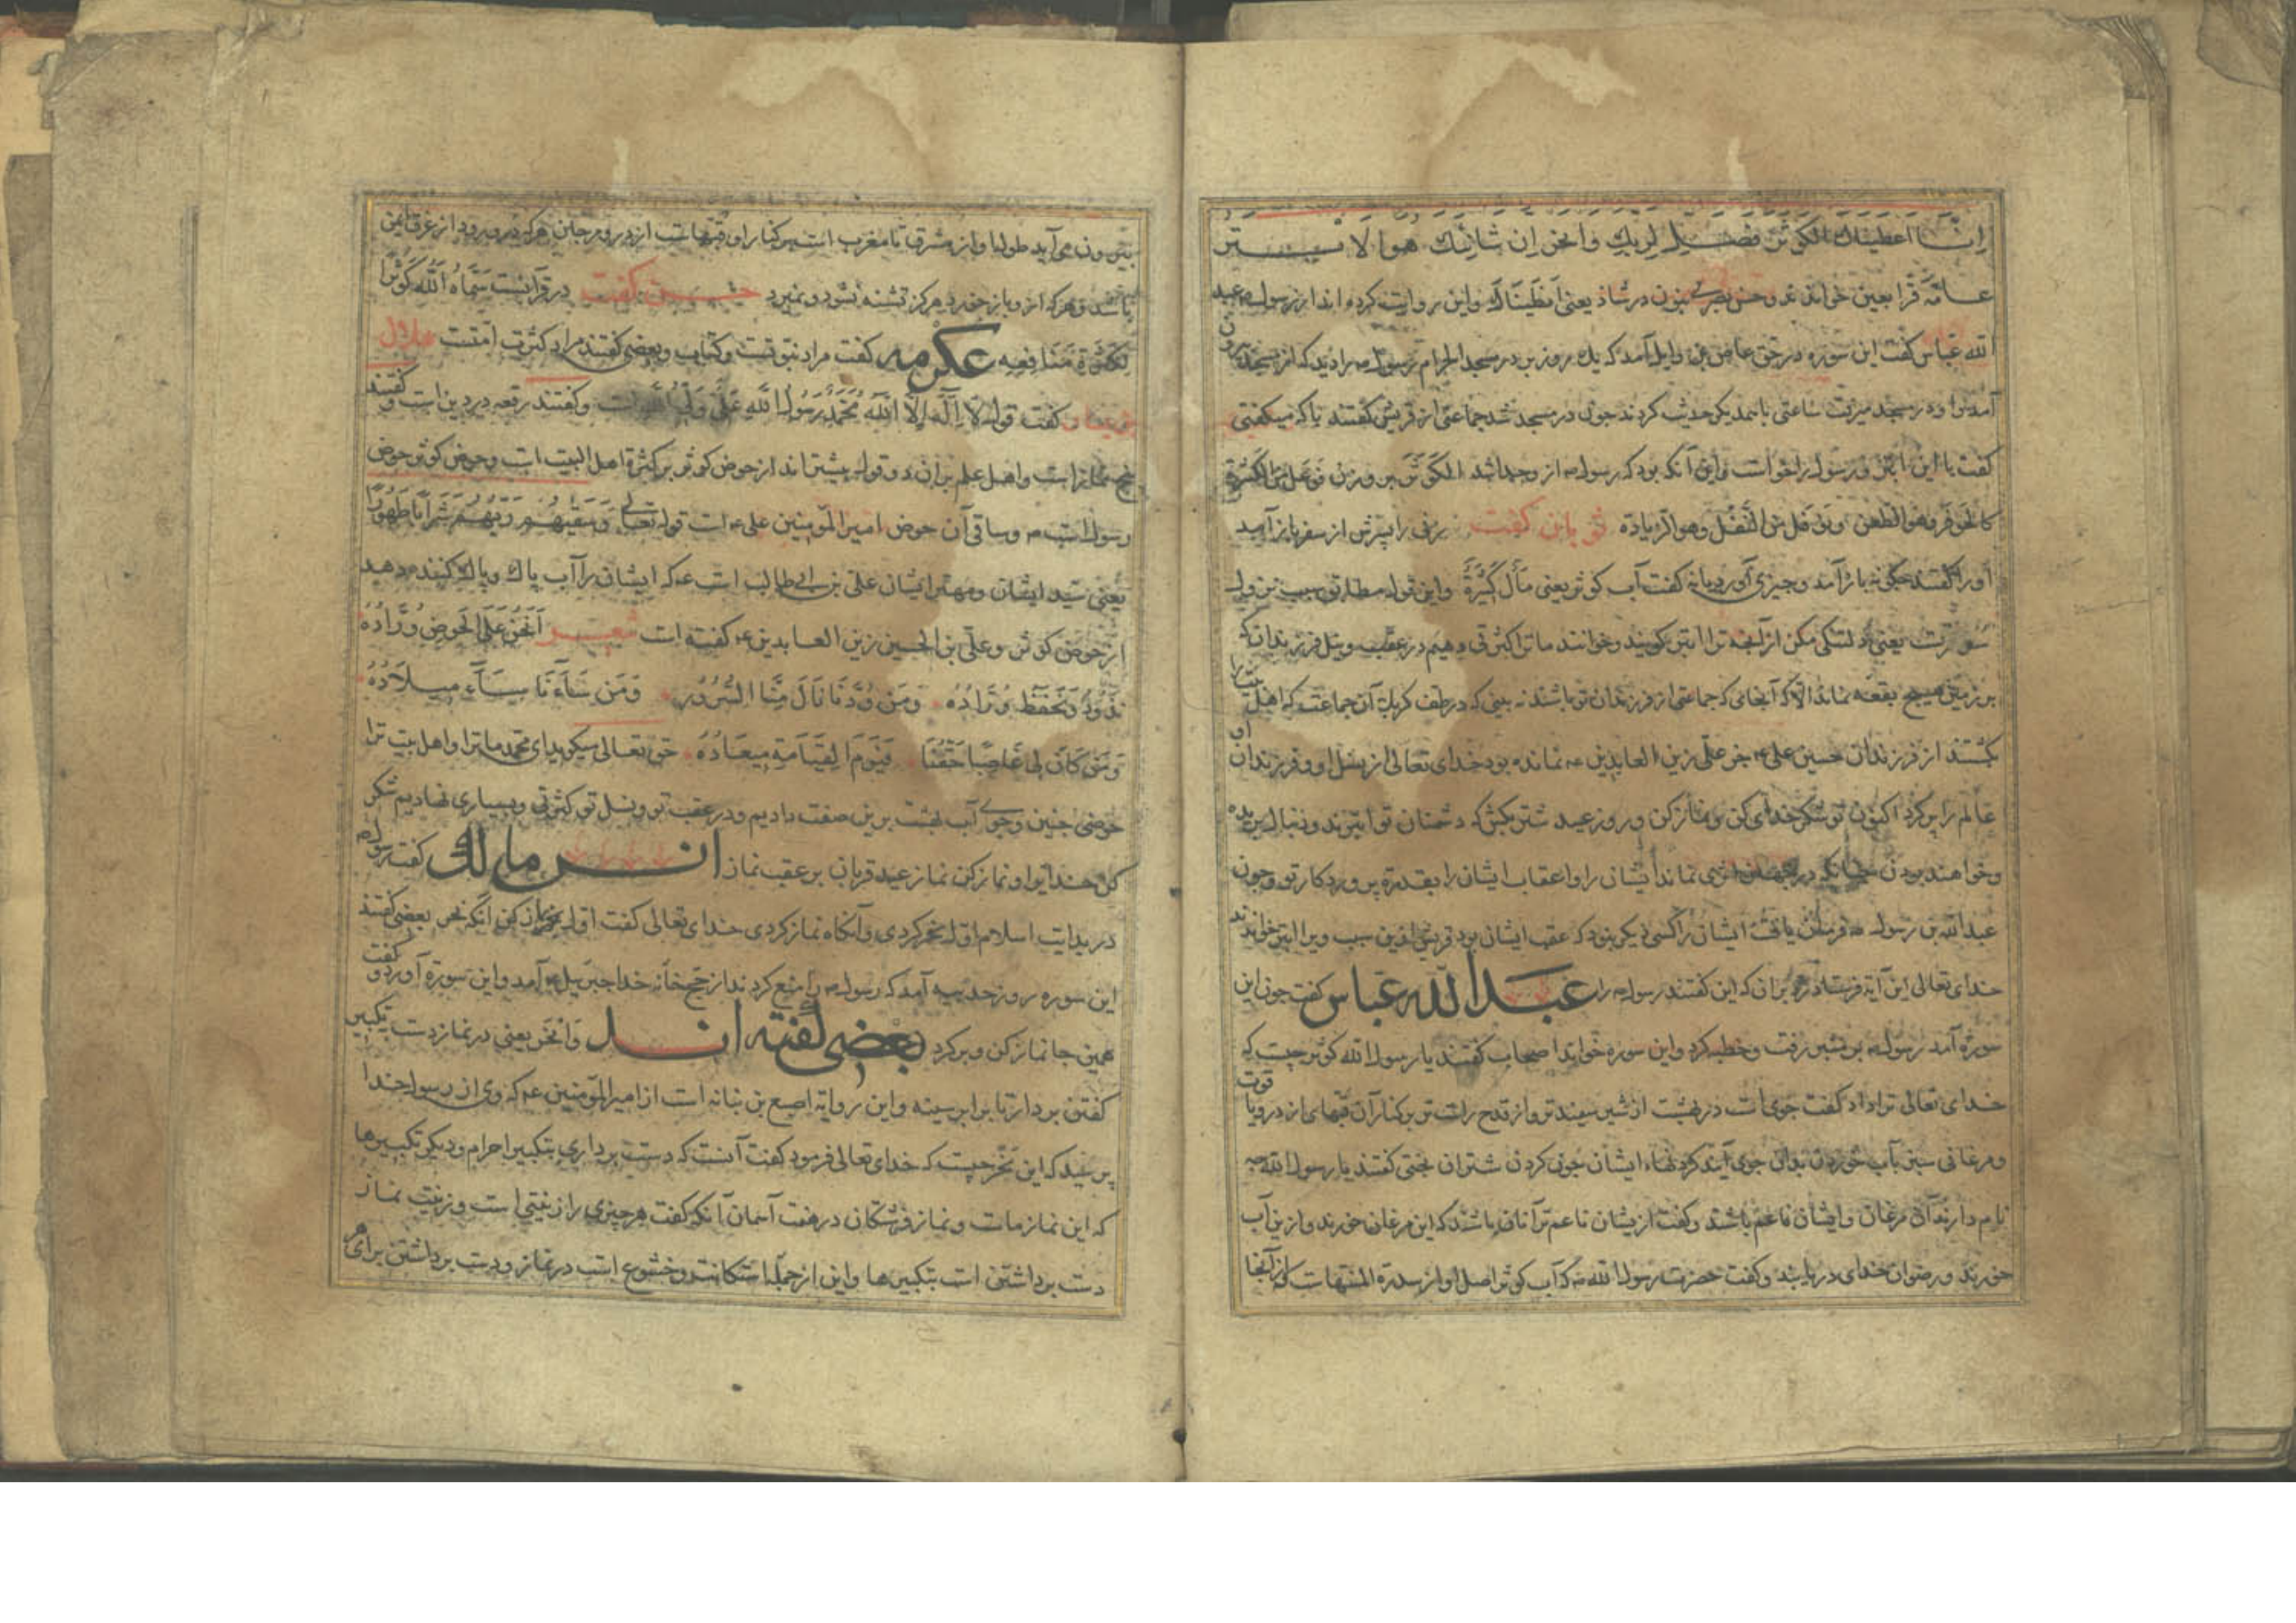 اِنّا اعطیناك الکوثر فصل لربك وانحر ان شانئك هو الابتر
عامّه قرا بعین خواندند و حسن بصری بنون در شاذ یعنی انطیناك و این روایت کرده اند از رسول ص عبد
الله عباس کفت این سوره در حق عاص بن وایل آمد که یك روز بر در مسجد الحرام رسول ص را دید که از مسجد بیرون
آمد و او در مسجد میرفت ساعتی با یکدیکر حدیث کردند چون در مسجد شد جماعتی از قریش کفتند با که میکفتی
کفت با این ابتر و رسول را خواست و این آنکه بود که رسول ص از وجدا شد الکوثر بر وزن فوعل من الکثرة
کالجوفر وهو النوفل من النفل وهو الزیادة سفیان کفت زنی را پسرش از سفر باز آمد
اورا کفتند چکونه باز آمد و چیزی آورد یا نه کفت آب کوثر یعنی مال کثیرة و این قول مطابق سبب نزول
سورتست یعنی دلتنکی مکن از آنچه ترا ابتر کویند و خوانند ما ترا کثرتی دهیم در عقب و نسل فرزندان که
بر زمین هیچ بقعه نماند الا که آنجای که جماعتی از فرزندان تو باشند نه بینی که در طف کربلا آن جماعت که اهل
کشتند از فرزندان حسین علی ع جز علی زین العابدین ع نمانده بود خدای تعالی از نسل او و فرزندان او
عالم را پر کرد اکنون تو شکر خدای کن و نماز کن و روز عید شتر بکش که دشمنان تو ابترند و دنبال بریده
و خواهند بودن چنانکه در جهان اثری نماند ایشان را و اعقاب ایشان را بقدرة پروردکار تو و چون
عبدالله بن رسول ص فرمان یافت ایشان را کسی دیکر نبود که عقب ایشان بود قریش بدین سبب ویرا ابتر خواندند
خدای تعالی این آیة فرستاد رد بر آن که این کفتند رسول ص را عبد الله عباس کفت چون این
سورة آمد رسول ص بر منبر رفت و خطبه کرد و این سوره خواند اصحاب کفتند یا رسول الله کوثر چیست که
خدای تعالی ترا داد کفت جوی است در بهشت از شیر سفیدتر و از قدح راست تر بر کنار آن قبّهای از در و یاقوت
و مرغانی سبز بآب خوردن بدان جوی آیند کردنهاء ایشان چون کردن شتران بختی کفتند یا رسول الله چه
نام دارند آن مرغان و ایشان ناعم باشند و کفت از یشان ناعم تر آنان باشند که این مرغان خورند و از ین آب
خورند و رضوان خدای دریابند و کفت حضرت رسول الله ص که آب کوثر اصل او از سدرة المنتهاست که از آنجا
بیرون می آید طول ما و از مشرق تا مغرب است بر کنار او قبّهاست از در و مرجان هرکه در و رود از غرق ایمن
باشد و هرکه ازو باز خورد هرکز تشنه نشود و نمیرد حسین کفت در قرآنست سمّاه الله کوثرا
لکثرة منافعه عکرمه کفت مراد نبوّتست و کتاب و بعضی کفتند مراد کثرت امّتست هلال
کفت قول لا اله الا الله محمد رسول الله علی ولی الله است و کفتند رفعه در دین است و کفتند
پنج نماز است و اهل علم بران ‌قول بیشتر اند از حوض کوثر بر کثرة اهل البیت است و حوض کوثر حوض
رسول است ص و ساقی آن حوض امیر المؤمنین علی ع است قوله تعالی وسقیهم ربهم شرابا طهورا
یعنی سید ایشان و مهتر ایشان علی بن ابی طالب است ع که ایشان را آب پاك و پاك کننده دهد
از حوض کوثر و علی بن الحسین زین العابدین ع کفته است شعر انحن علی الحوض وُرّاده
نذود ونحفظ وُرّاده ومن ودّنا نال منّا السرور ومن ساءنا ساء میلاده
ومن کان لی غاصبا حقنا فیوم القیامة میعاده حق تعالی میکوید ای محمد ما ترا و اهل بیت ترا
حوضی چنین و جوی آب بهشت برین صفت دادیم و در عقب تو و نسل تو کثرتی و بسیاری نهادیم شکر
کن خدای را و نماز کن نماز عید قربان بر عقب نماز انس مالك کفت رسول ص
در بدایت اسلام اول نحر کردی و آنکاه نماز کردی خدای تعالی کفت اول نماز کن آنکه نحر بعضی کفتند
این سوره روز حدیبیه آمد که رسول ص را منع کردند از حج خانه خدا جبرئیل ع آمد و این سورة آورد و کفت
همین جا نماز کن و برکرد بعضی کفته اند وانحر یعنی در نماز دست تکبیر
کفتن بردار تا برابر سینه و این روایة اصبع بن نباته است از امیر المؤمنین ع که وی از رسول خدا
پرسید که این نحر چیست که خدای تعالی فرمود کفت آنست که دست برداری بتکبیر احرام و دیکر تکبیرها
که این نماز ماست و نماز فرشتکان در هفت آسمان آنکه کفت هر چیزی را زینتی است و زینت نماز
دست برداشتن است بتکبیرها و این از جمله استکانت و خشوع است در نماز و دست برداشتن برای هر